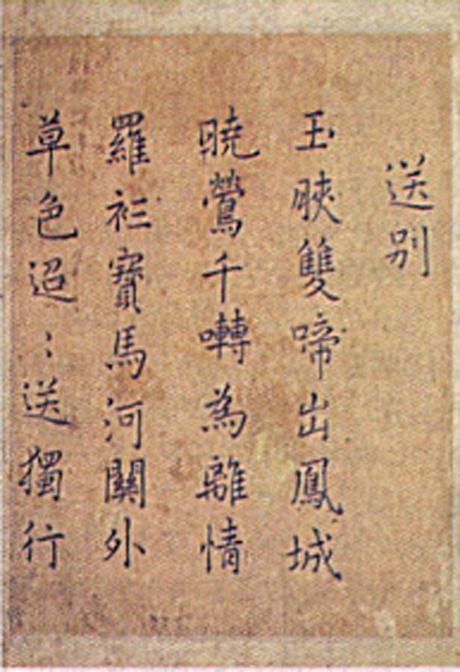 送别
玉睞雙啼出鳳城
曉鶯千囀為離情
羅衫寶馬河關外
草色迢〻送獨行